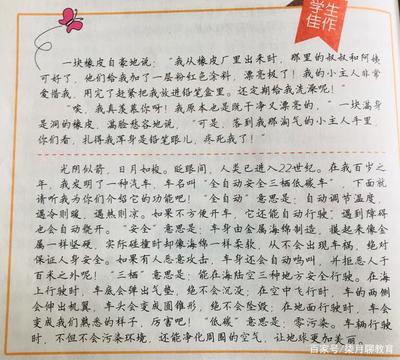 学生
佳作
一块橡皮自豪地说："我从橡皮厂里出来时，那里的叔叔和阿姨
可好了，他们给我加了一层粉红色涂料，漂亮极了！我的小主人非常
爱惜我，用完了赶紧把我放进铅笔盒里。还定期给我洗澡呢！"
"唉，我真羡慕你呀！我原本也是既干净又漂亮的，"一块满身
是洞的橡皮，满脸愁容地说，"可是，落到我那淘气的小主人手里
你们看，扎得我浑身是铅笔眼儿，疼死我了！"
光阴似箭，日月如梭。眨眼间，人类已进入22世纪。在我百岁之
年，我发明了一种汽车，车名叫"全自动安全三栖低碳车"，下面就
请听我为你们介绍它的功能吧！"全自动"意思是：自动调节温度，
遇冷则暖，遇热则凉。如果不方便开车，它还能自动行驶，遇到障碍
也会自动脱离。"安全"意思是：车身由金属海绵制造，摸起来像金
属一样坚硬，实际碰撞时却像海绵一样柔软，从不会出现车祸，绝对
保证人身安全。如果有人恶意攻击，车身还会自动鸣叫，并拒恶人于
百米之外呢！"三栖"意思是：能在海陆空三种地方安全行驶。在海
上行驶时，车底会弹出气垫，绝不会沉没；在空中飞行时，车的两侧
会伸出机翼，车头会变成圆锥形，绝不会坠毁；在地面行驶时，车会
变成我们熟悉的样子，厉害吧！"低碳"意思是：零污染。车辆行驶
时，不但不会污染环境，还能净化周围的空气，让地球更加美丽。
百家号/柒月聊教育